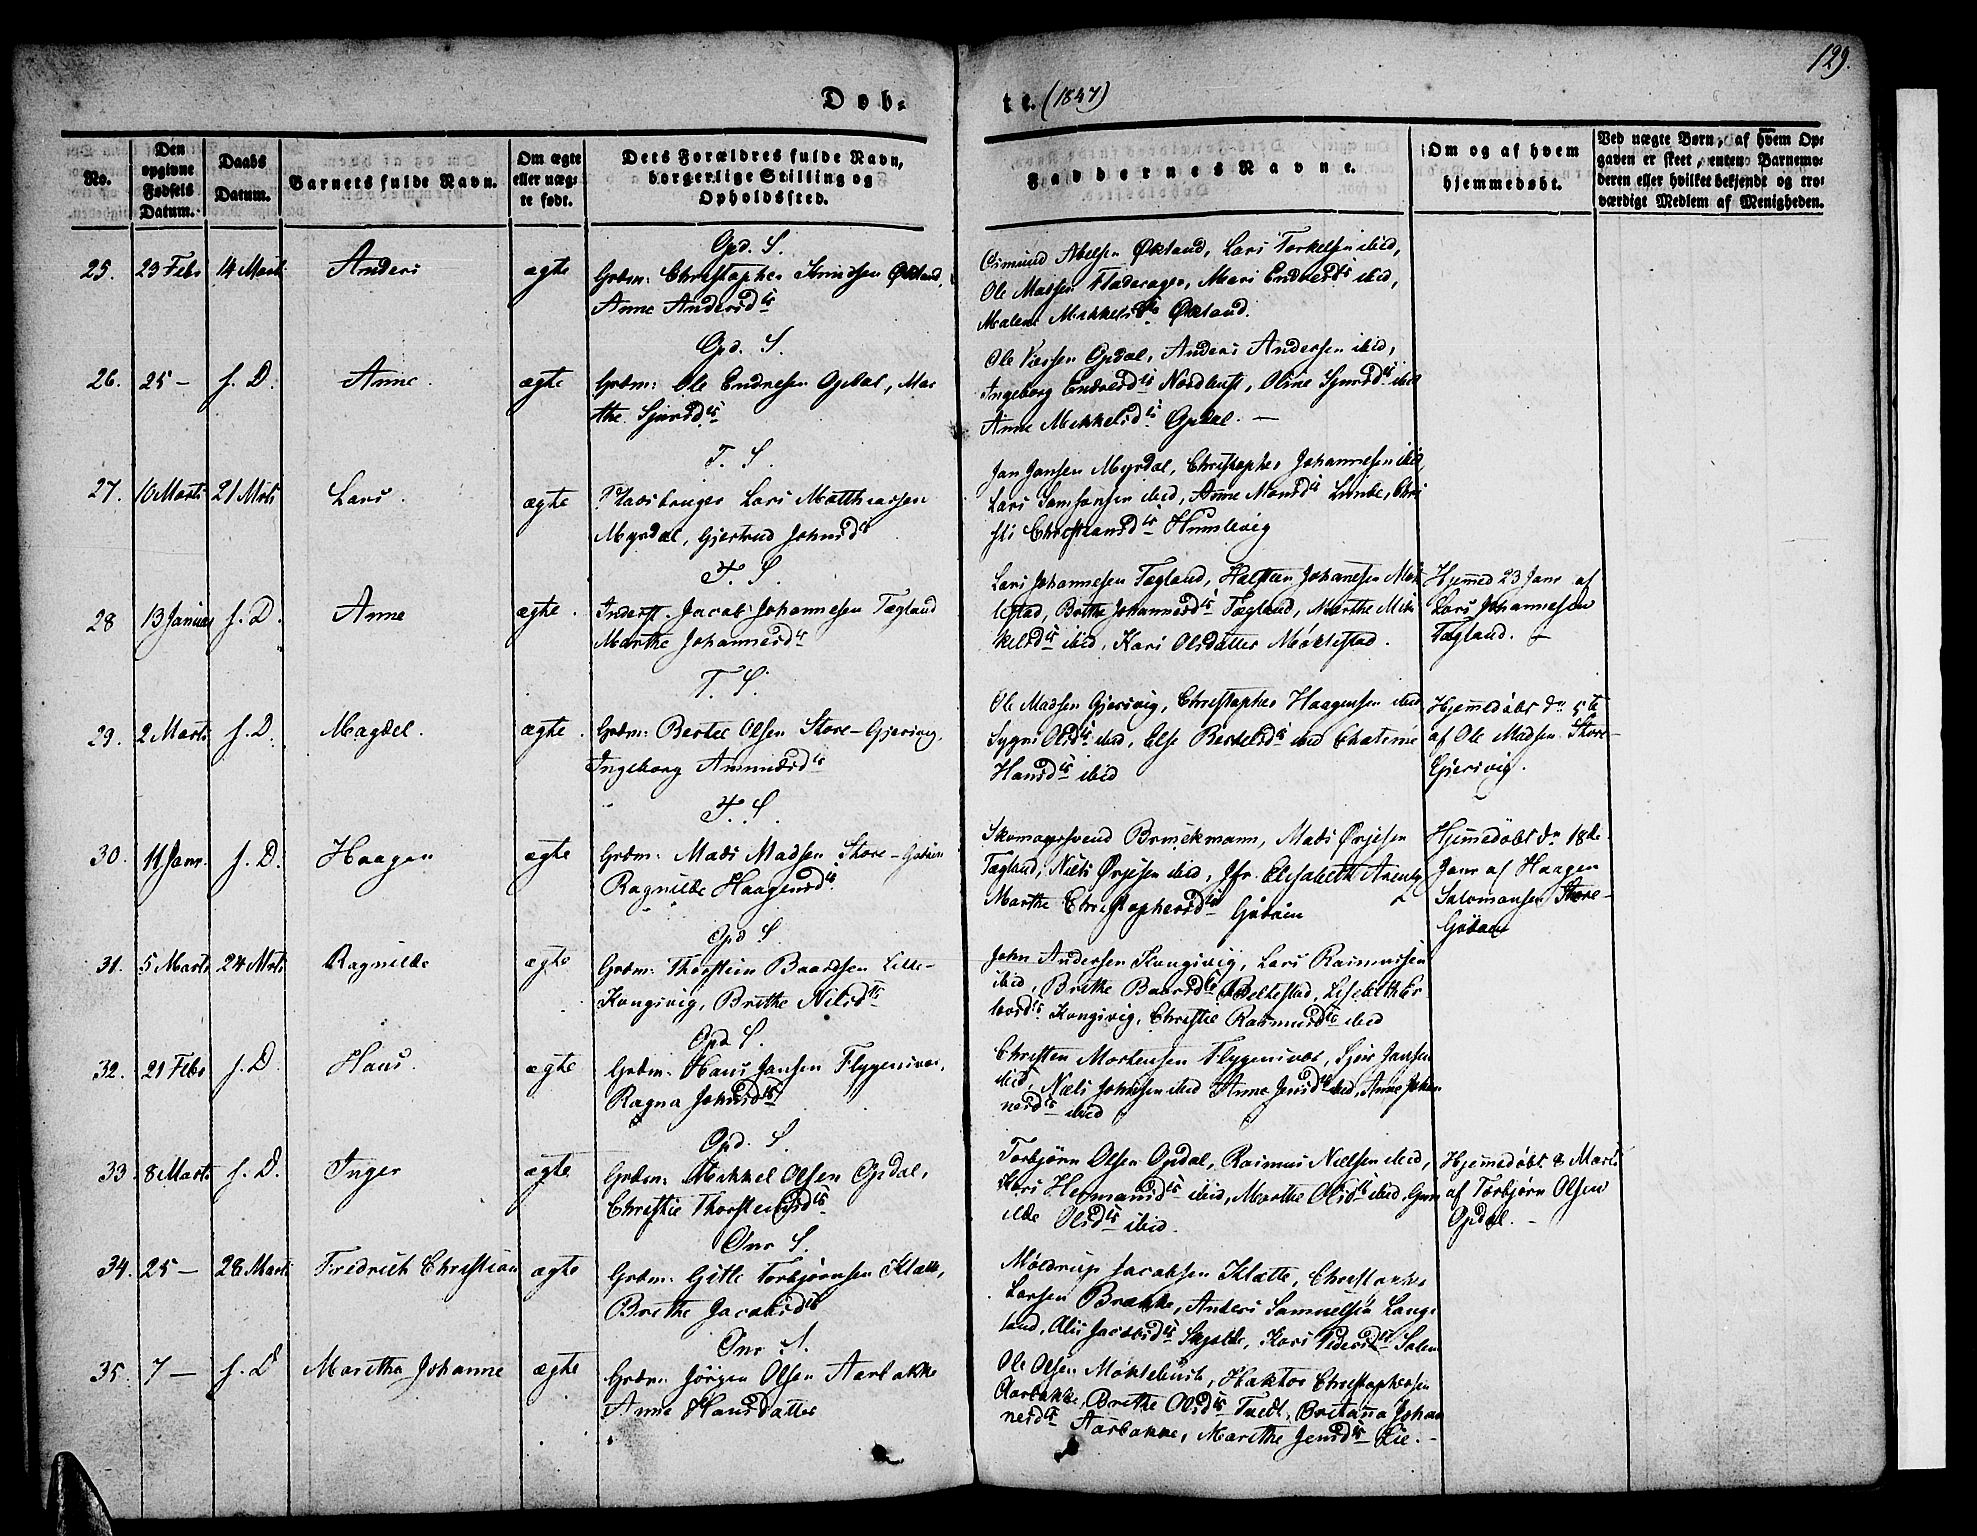 129.
Døb-
te. (1847)
No.
Den
opgivne
Fødsels
Datum.
Daabs
Datum.
Barnets fulde Navn.
Om ægte
eller uæg-
te født.
Dets Forældres fulde Navn,
borgerlige Stilling og
Opholdssted.
Faddernes Navne.
Om og af hvem
hjemmedøbt.
Ved uægte Børn, af hvem Op-
gaven er skeet, enten Barnemo-
deren eller hvilket bekjendt og tro-
værdigt Medlem af Menigheden.
Opd. S.
25. 23 Febr 14 Marti Anders ægte Grdm: Christopher Økland,
Anne Andersdtr
Osmund Abelsen Økland, Lars Torkelsen ibid,
Ole Massen, Mari Endresdtr ibid,
Malene Mikkelsdtr Økland.
Opd. S.
26. 25 - s. D. Anne. ægte Grdm: Ole Endresen Opdal, Mar
the Sjursdtr
Ole Opdal, Anders Andersen ibid,
Ingeborg Endresdtr Nordhust, Oline Sjursdtr ibid
Anne Mikkelsdtr Opdal. —
T. S.
27. 10 Marts 21 Mrts Lars. ægte Pladsbruger Lars Matthiassen
Myrdal, Gjertrud Johnsdtr
Jan Jansen Myrdal, Christopher Johannesen ibid,
Lars Samsonsen ibid, Anne Monsdtr Lunde, Chri
sti Christiansdtr Humlevig
T. S.
28 13 Januar s. D. Anne ægte. Inderst. Jacob Johannesen Tægland
Marthe Johannesdtr
Lars Johannesen Tægland, Halsteen Johanesen Møk
lestad, Brithe Johannesdtr Tægland, Marthe Mik
kelsdtr ibid, Kari Olsdatter Møklestad.
Hjemmed 23 Janr af
Lars Johannesen
Tægland. —
T. S.
29. 2 Marts s. D. Magdel. ægte. Grdm: Bertel Olsen Store-Gjersvig,
Ingeborg Ammundsdtr
Ole Massen Gjersvig, Christopher Haagensen ibid
Sygni Olsdtr ibid, Else Bertelsdtr ibid Chatrine
Hansdtr ibid
Hjemmedøbt dn 5te
af Ole Madsen Store-
Gjersvig.
T. S.
30. 11 Janr. s. D. Haagen ægte Grdm: Mads Madsen Store-Godøen
Ragnilde Haagensdtr
Skomagersvend Brinckmann, Mads Ørjesen
Tægland, Niels Ørjesen ibid, Jfr. Elisabeth Arentz
Marthe Christophersdtr Godøen
Hjemmedøbt dn 18de
Janr af Haagen
Salomonsen Store-
Godøen
Opd S.
31. 5 Marts 24 Mrts Ragnilde ægte Grdm: Thorstein Baardsen Lille-
Kongsvig, Brithe Nilsdtr
John Andersen Kongsvig, Lars Rasmussen
ibid, Brithe Baardsdtr Røeltestad, Lisebeth Er
Kongsvig, Christie Rasmusdtr ibid
Opd S.
32. 21 Febr s. D. Hans. ægte Grdm: Hans Jansen Flygensvær,
Ragna Johnsdtr
Christen Mortensen Flygensvær, Sjur Jansen
ibid, Niels Johnsen ibid Anne Jensdtr ibid, Anne Johan
nesdtr ibid
Opd. S.
33. 8 Marts s. D. Inger ægte Grdm: Mikkel Olsen Opdal,
Christie Thorstensdtr
Torbjørn Olsen Opdal, Rasmus Nielsen ibid,
Kari Hermansdtr ibid, Marthe Olsdtr ibid, Gun
ilde Olsdtr ibid.
Hjemmedøbt 8 Marts
af Torbjørn Olsen
Opdal. —
Onr S.
34. 25 — 28 Marts Fredrich Christian ægte Grdm: Gitle Torbjørnsen Klætte,
Brithe Jacobsdtr
Møldrup Jacobsen Klætte, Christopher
Larsen Brække, Anders Samuelsen Lange
land, Alis Jacobsdtr Skjolde, Kari Pedersdtr
Onr S.
35. 7 — s. D Maretha Johanne ægte Grdm. Jörgen Olsen Aarbakke
Anne Hansdatter
Ole Olsen Møklebust, Haktor Christophersen
Aarbakke, Brithe Olsdtr Tvedt, Britanna Johan
nesdtr Aarbakke, Marithe Jensdtr Lie. —